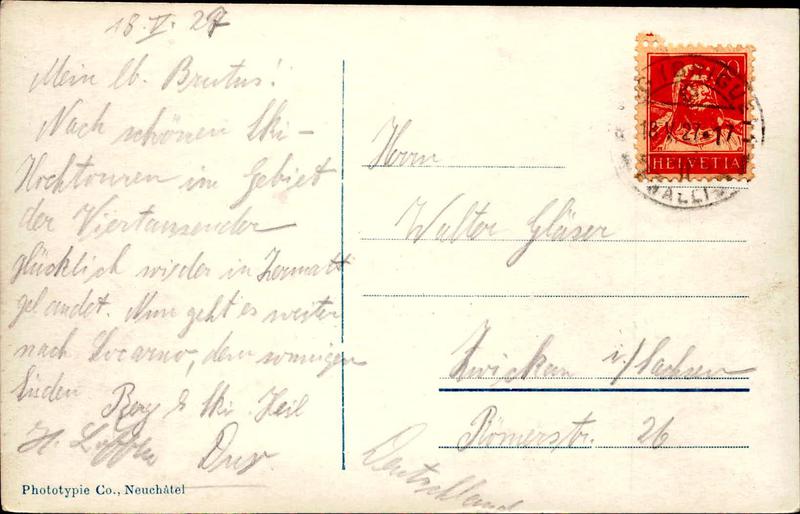 18. V. 27
Mein lb. Brutus!
Nach schönen Ski-
Hochtouren im Gebiet
der Viertausender
glücklich wieder in Zermatt
gelandet. Nun geht es weiter
nach Locarno, dem sonnigen
Süden
Berg & Ski Heil
H.
Phototypie Co., Neuchâtel
20
18 V. 27 17
HELVETIA
Herrn
Walter Gläser
Zwickau i/Sachsen
Römerstr. 26
Deutschland